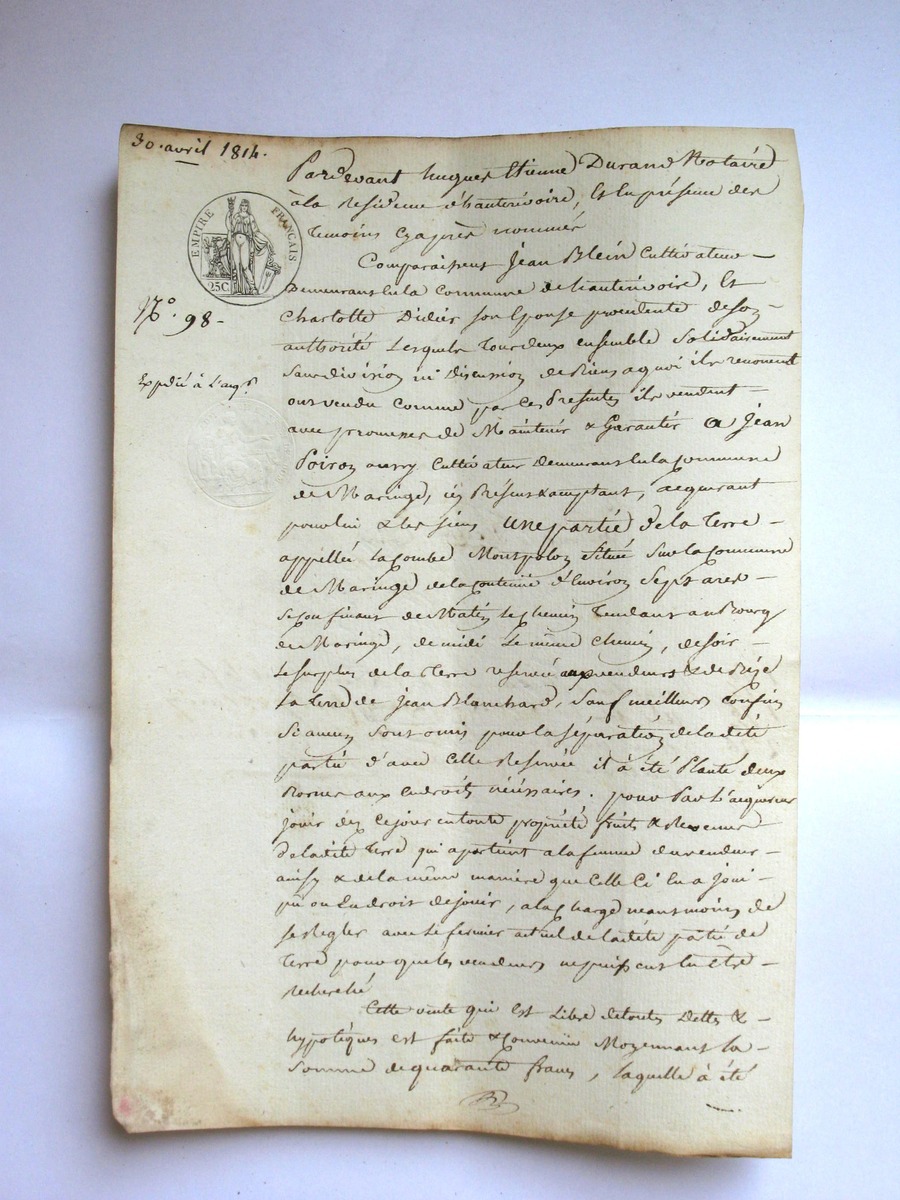 30. avril 1814.
EMPIRE FRANÇAIS
25C
N.º 98 -
Expédié à l'acq.r
Pardevant hugues Etienne Durand Notaire
à la Residence d'hauterivoire, Et En présence des
temoins cyaprès nommés
Comparaissent Jean Blein Cultivateur -
Demeurant En la Commune de hauterivoire, Et
Charlotte Didier son Epouse procedente de son
authorité Lesquels tous deux ensemble Solidairement
Sans division ni Discussion de Biens a quoi ils renoncent
ont vendu Comme par Ces Presentes ils vendent -
avec promesse de Maintenir & Garantir a Jean
Poizon aussy Cultivateur demeurant En la Commune
de Maringe, ici Présent & acceptant, acquerant
pour lui & les siens une partie de la terre -
appellée La Combe Située Sur la Commune
de Maringe de la Contenue d'Environ Sept ares -
Se Confinant de Matin Le chemin tendant au Bourg
de Maringe, de midi Le même Chemin, de soir -
Le surplus de la terre reservée aux vendeurs & de Bize
La terre de jean Blanchard, Sauf meilleurs Confins
Si aucun Sont omis pour la séparation de ladite
partie d'avec Celle Reservée il à été Planté deux
Bornes aux Endroits nécéssaires. pour Par L'acquereur
jouir dez Cejour en toute propriété fruits & Revenus
de ladite terre qui apartient a la femme du vendeur -
ainsy & de la même maniere que Celle Ci En a joui -
pû ou En droit de jouir, a la Charge neant moins de
se Regler avec Le fermier actuel de ladite partie de
terre pour que les vendeurs ne puissent En Etre -
recherché
Cette vente qui Est Libre de toutes Dettes & -
hypotèques est faite & Convenue Moyennant la -
Somme de quarante francs, laquelle à été